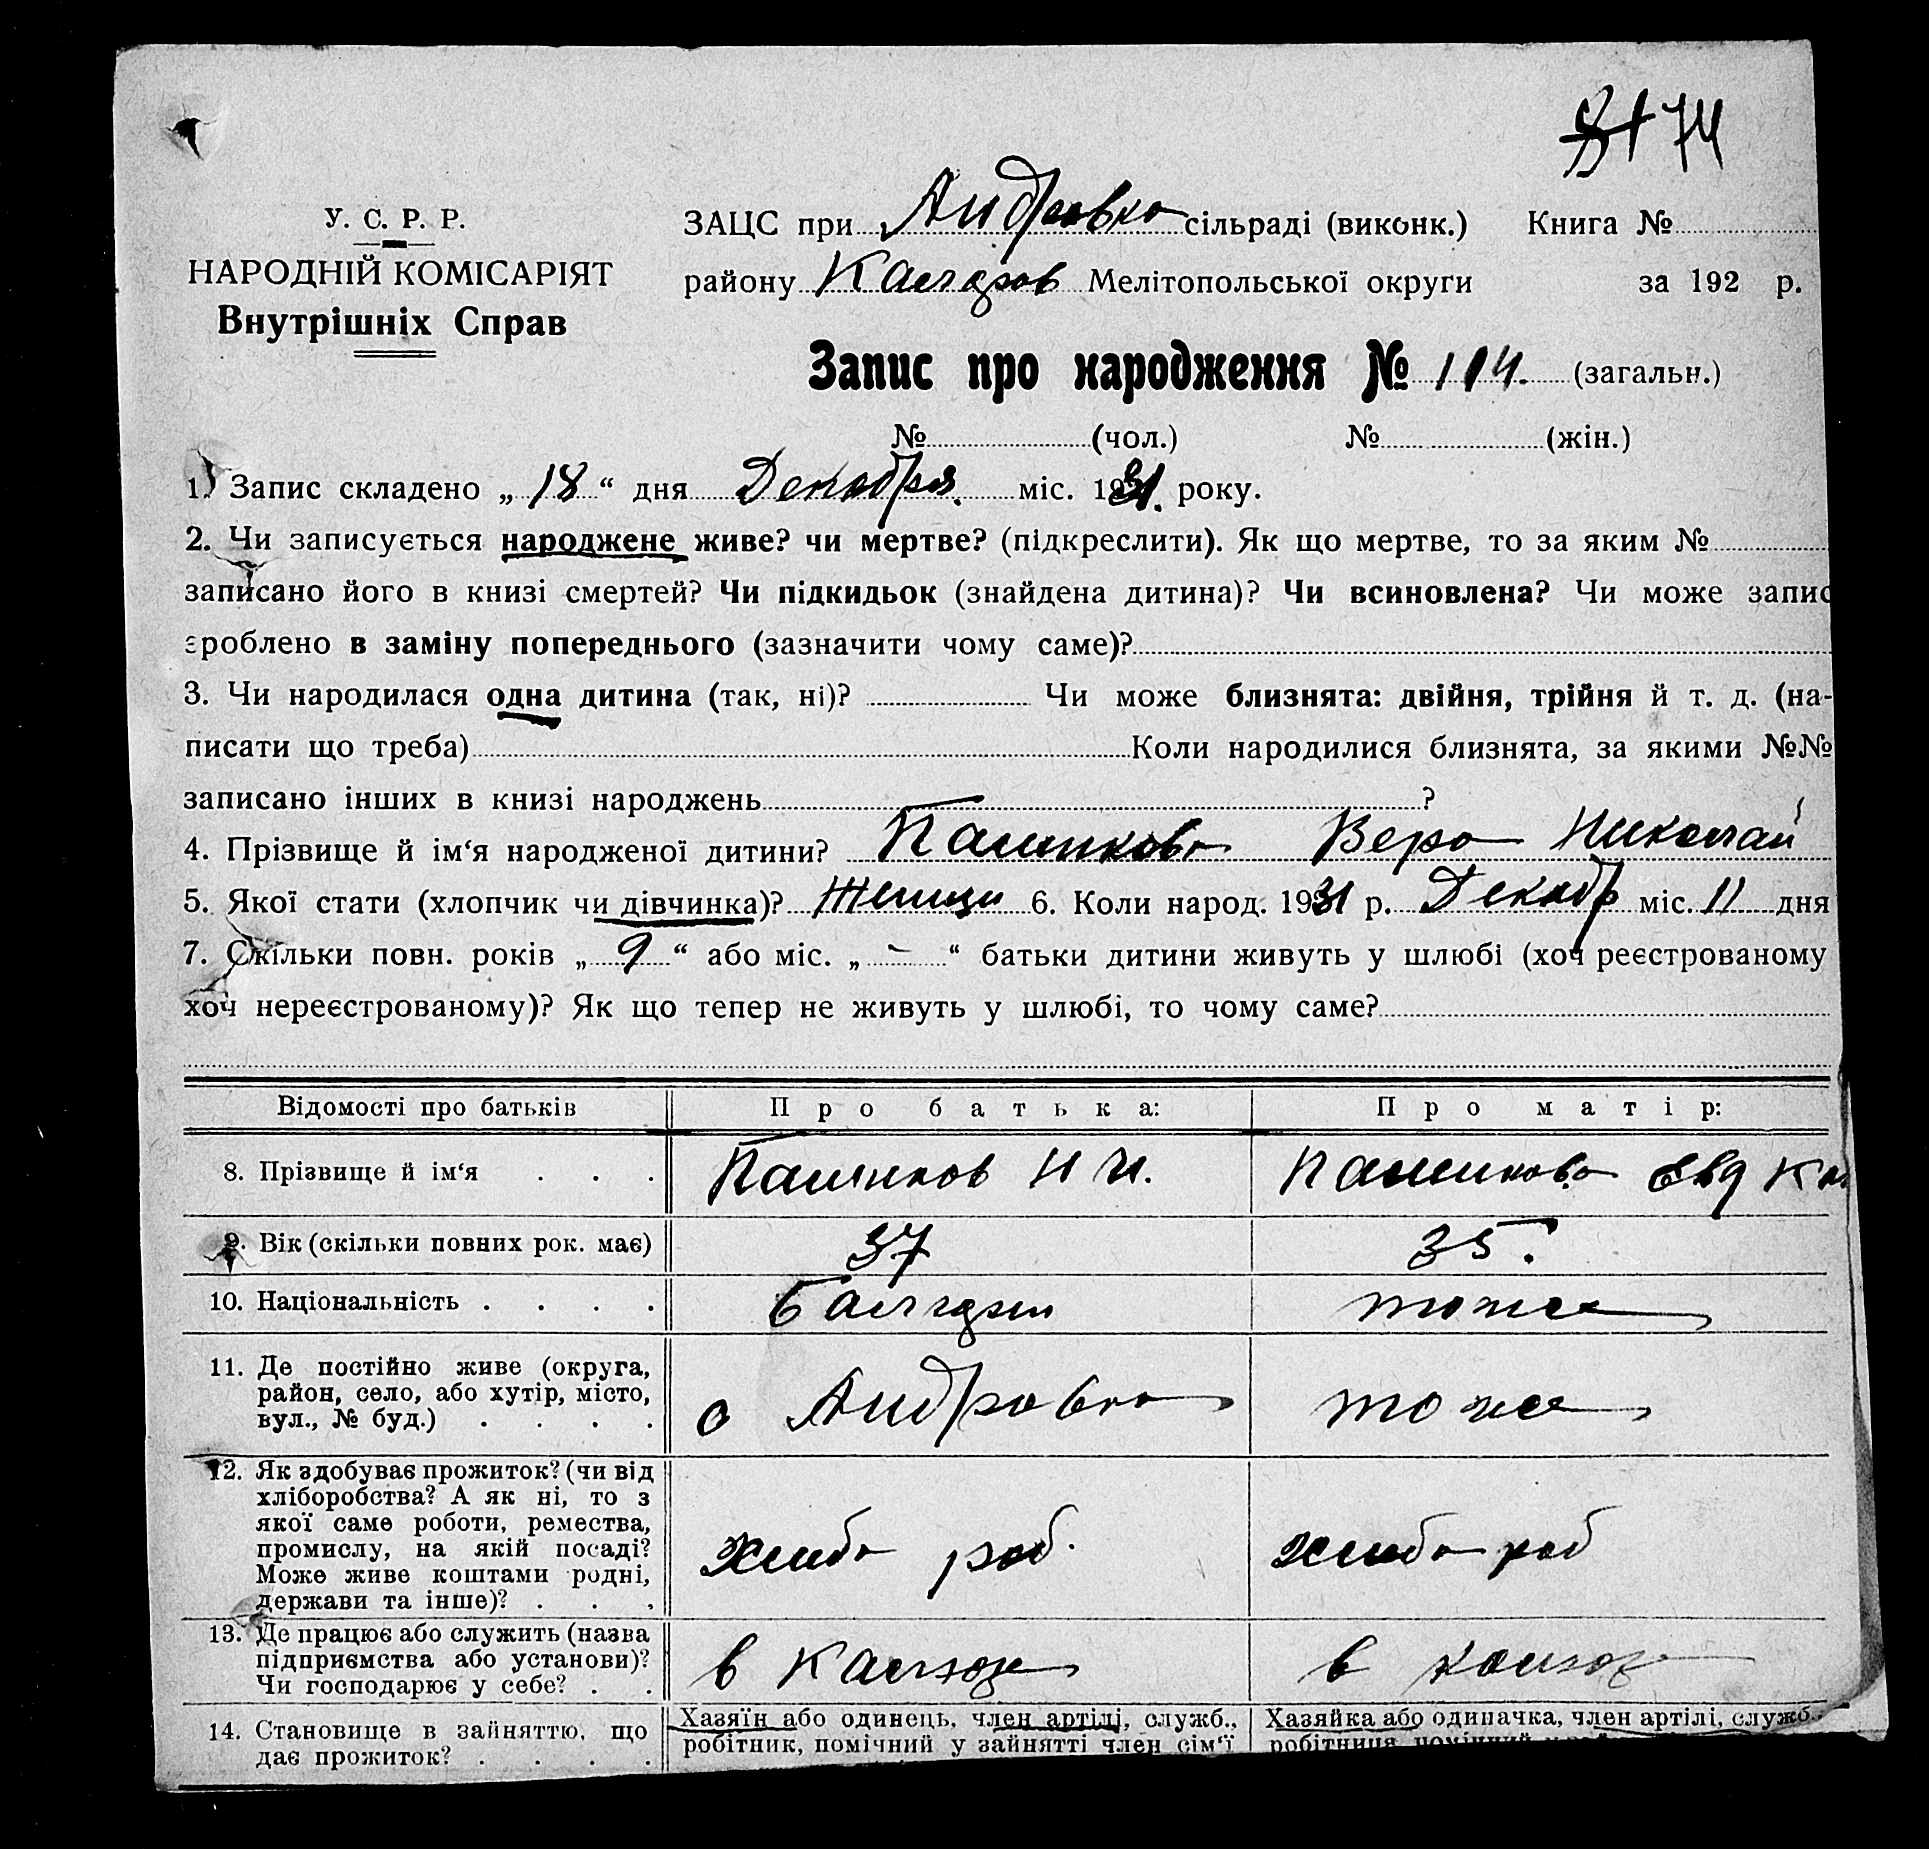 74
У. С. Р. Р.
НАРОДНІЙ КОМІСАРІЯТ
Внутрішніх Справ
ЗАЦС при Андровка сільраді (виконк.) Книга №
району Мелітопольської округи за 192 р.
Запис про народження № 114. (загальн.)
№ (чол.) № (жін.)
1. Запис складено „18“ дня Декабря. міс. 1931. року.
2. Чи записується народжене живе? чи мертве? (підкреслити). Як що мертве, то за яким №
записано його в книзі смертей? Чи підкидьок (знайдена дитина)? Чи всиновлена? Чи може запис
зроблено в заміну попереднього (зазначити чому саме)?
3. Чи народилася одна дитина (так, ні)? Чи може близнята: двійня, трійня й т. д. (на-
писати що треба) Коли народилися близнята, за якими №№
записано інших в книзі народжень ?
4. Прізвище й ім‘я народженої дитини? Пашикова Вера Николай
5. Якої стати (хлопчик чи дівчинка)? 6. Коли народ. 1931 р. Декабр міс. 11 дня
7. Скільки повн. років „9“ або міс. „-“ батьки дитини живуть у шлюбі (хоч реєстрованому
хоч нереєстрованому)? Як що тепер не живуть у шлюбі, то чому саме?
Відомості про батьків Про батька: Про матір:
8. Прізвище й ім‘я . . . Пашиков Н И. Пашикова Евд
9. Вік (скільки повних рок. має) 37 35.
10. Національність . . . . тоже
11. Де постійно живе (округа,
район, село, або хутір, місто,
вул., № буд.) . . . . с Андровка тоже
12. Як здобуває прожиток? (чи від
хліборобства? А як ні, то з
якої саме роботи, ремества,
промислу, на якій посаді?
Може живе коштами родні,
держави та інше)? . . . хлибо роб. хлибо роб
13. Де працює або служить (назва
підприємства або установи)?
Чи господарює у себе? . . в Калхоз в колхоз
14. Становище в зайняттю, що
дає прожиток? . . . .
Хазяїн або одинець, член артілі, служб.,
робітник, помічний у зайнятті член сім‘ї
Хазяйка або одиначка, член артілі, служб.
робітниця